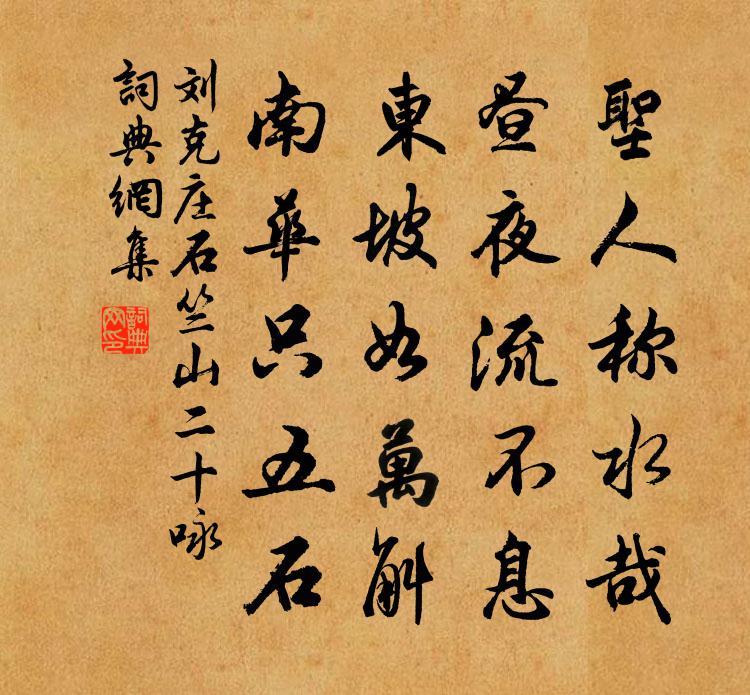 聖人称水哉
昼夜流不息
東坡如萬斛
南華只五石
刘克庄石竺山二十咏
詞典網集
詞典網印